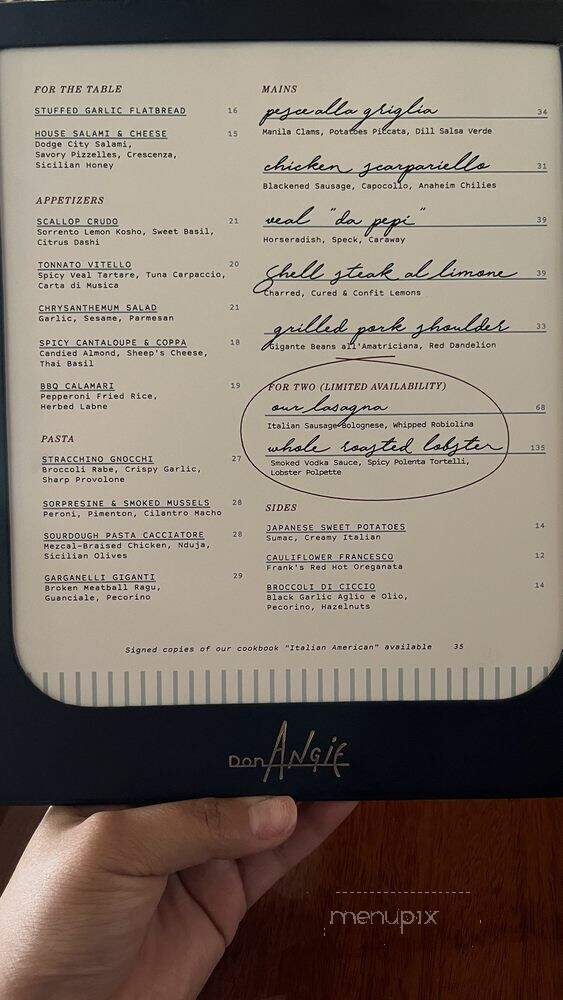 FOR THE TABLE
STUFFED GARLIC FLATBREAD 16
HOUSE SALAMI & CHEESE 15
Dodge City Salami,
Savory Pizzelles, Crescenza,
Sicilian Honey
APPETIZERS
SCALLOP CRUDO 21
Sorrento Lemon Kosho, Sweet Basil,
Citrus Dashi
TONNATO VITELLO 20
Spicy Veal Tartare, Tuna Carpaccio,
Carta di Musica
CHRYSANTHEMUM SALAD 21
Garlic, Sesame, Parmesan
SPICY CANTALOUPE & COPPA 18
Candied Almond, Sheep's Cheese,
Thai Basil
BBQ CALAMARI 19
Pepperoni Fried Rice,
Herbed Labne
PASTA
STRACCHINO GNOCCHI 27
Broccoli Rabe, Crispy Garlic,
Sharp Provolone
SORPRESINE & SMOKED MUSSELS 28
Peroni, Pimenton, Cilantro Macho
SOURDOUGH PASTA CACCIATORE 28
Mezcal-Braised Chicken, Nduja,
Sicilian Olives
GARGANELLI GIGANTI 29
Broken Meatball Ragu,
Guanciale, Pecorino
MAINS
pesce alla griglia 34
Manila Clams, Potatoes Piccata, Dill Salsa Verde
chicken scarpariello 31
Blackened Sausage, Capocollo, Anaheim Chilies
veal "da pepi" 39
Horseradish, Speck, Caraway
shell steak al limone 39
Charred, Cured & Confit Lemons
grilled pork shoulder 33
Gigante Beans all'Amatriciana, Red Dandelion
FOR TWO (LIMITED AVAILABILITY)
our lasagna 68
Italian Sausage Bolognese, Whipped Robiolina
whole roasted lobster 135
Smoked Vodka Sauce, Spicy Polenta Tortelli,
Lobster Polpette
SIDES
JAPANESE SWEET POTATOES 14
Sumac, Creamy Italian
CAULIFLOWER FRANCESCO 12
Frank's Red Hot Oreganata
BROCCOLI DI CICCIO 14
Black Garlic Aglio e Olio,
Pecorino, Hazelnuts
Signed copies of our cookbook "Italian American" available 35
Don ANGIE
menupix